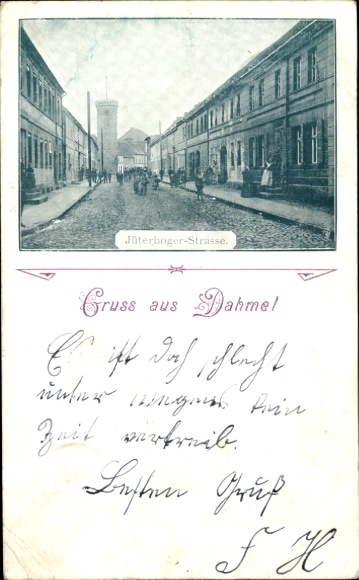 Jüterboger-Strasse.
Gruss aus Dahme!
Es ist doch schlecht
unter kein
Zeit vertreib.
Besten Gruß
F H